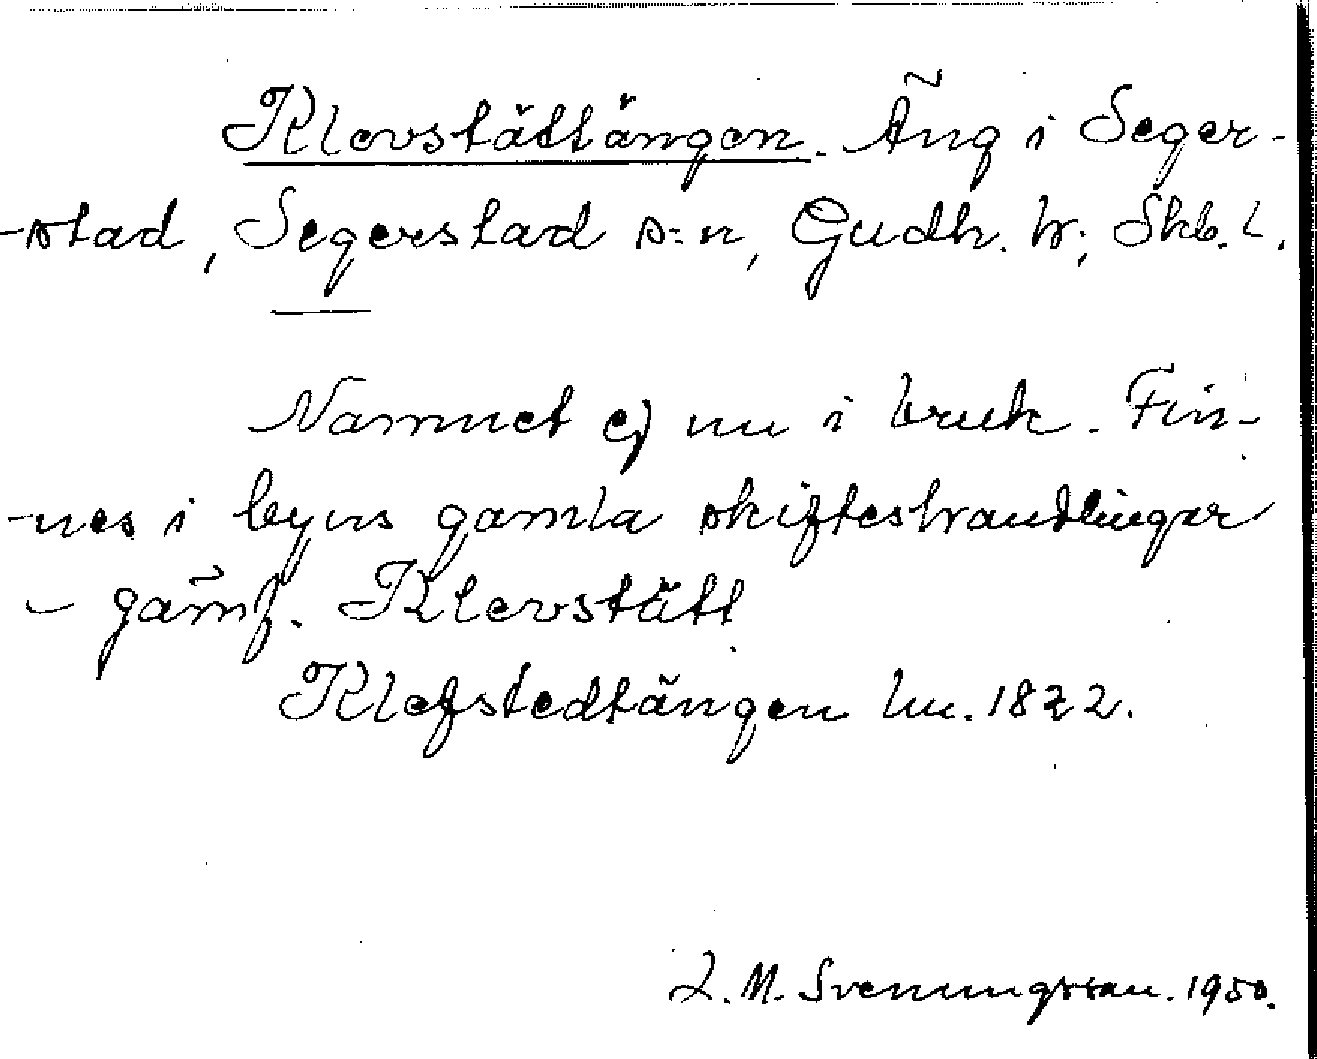 Klevstättängen. Äng i Seger-
-stad, Segerstad s:n, Gudh. h:, Skb. l.
Namnet ej nu i bruk. Fin-
-nes i byns gamla skifteshandlingar
- jämf. Klevstätt
Klefstedtängen hm. 1822.
L. M. Svenungsson. 1950.